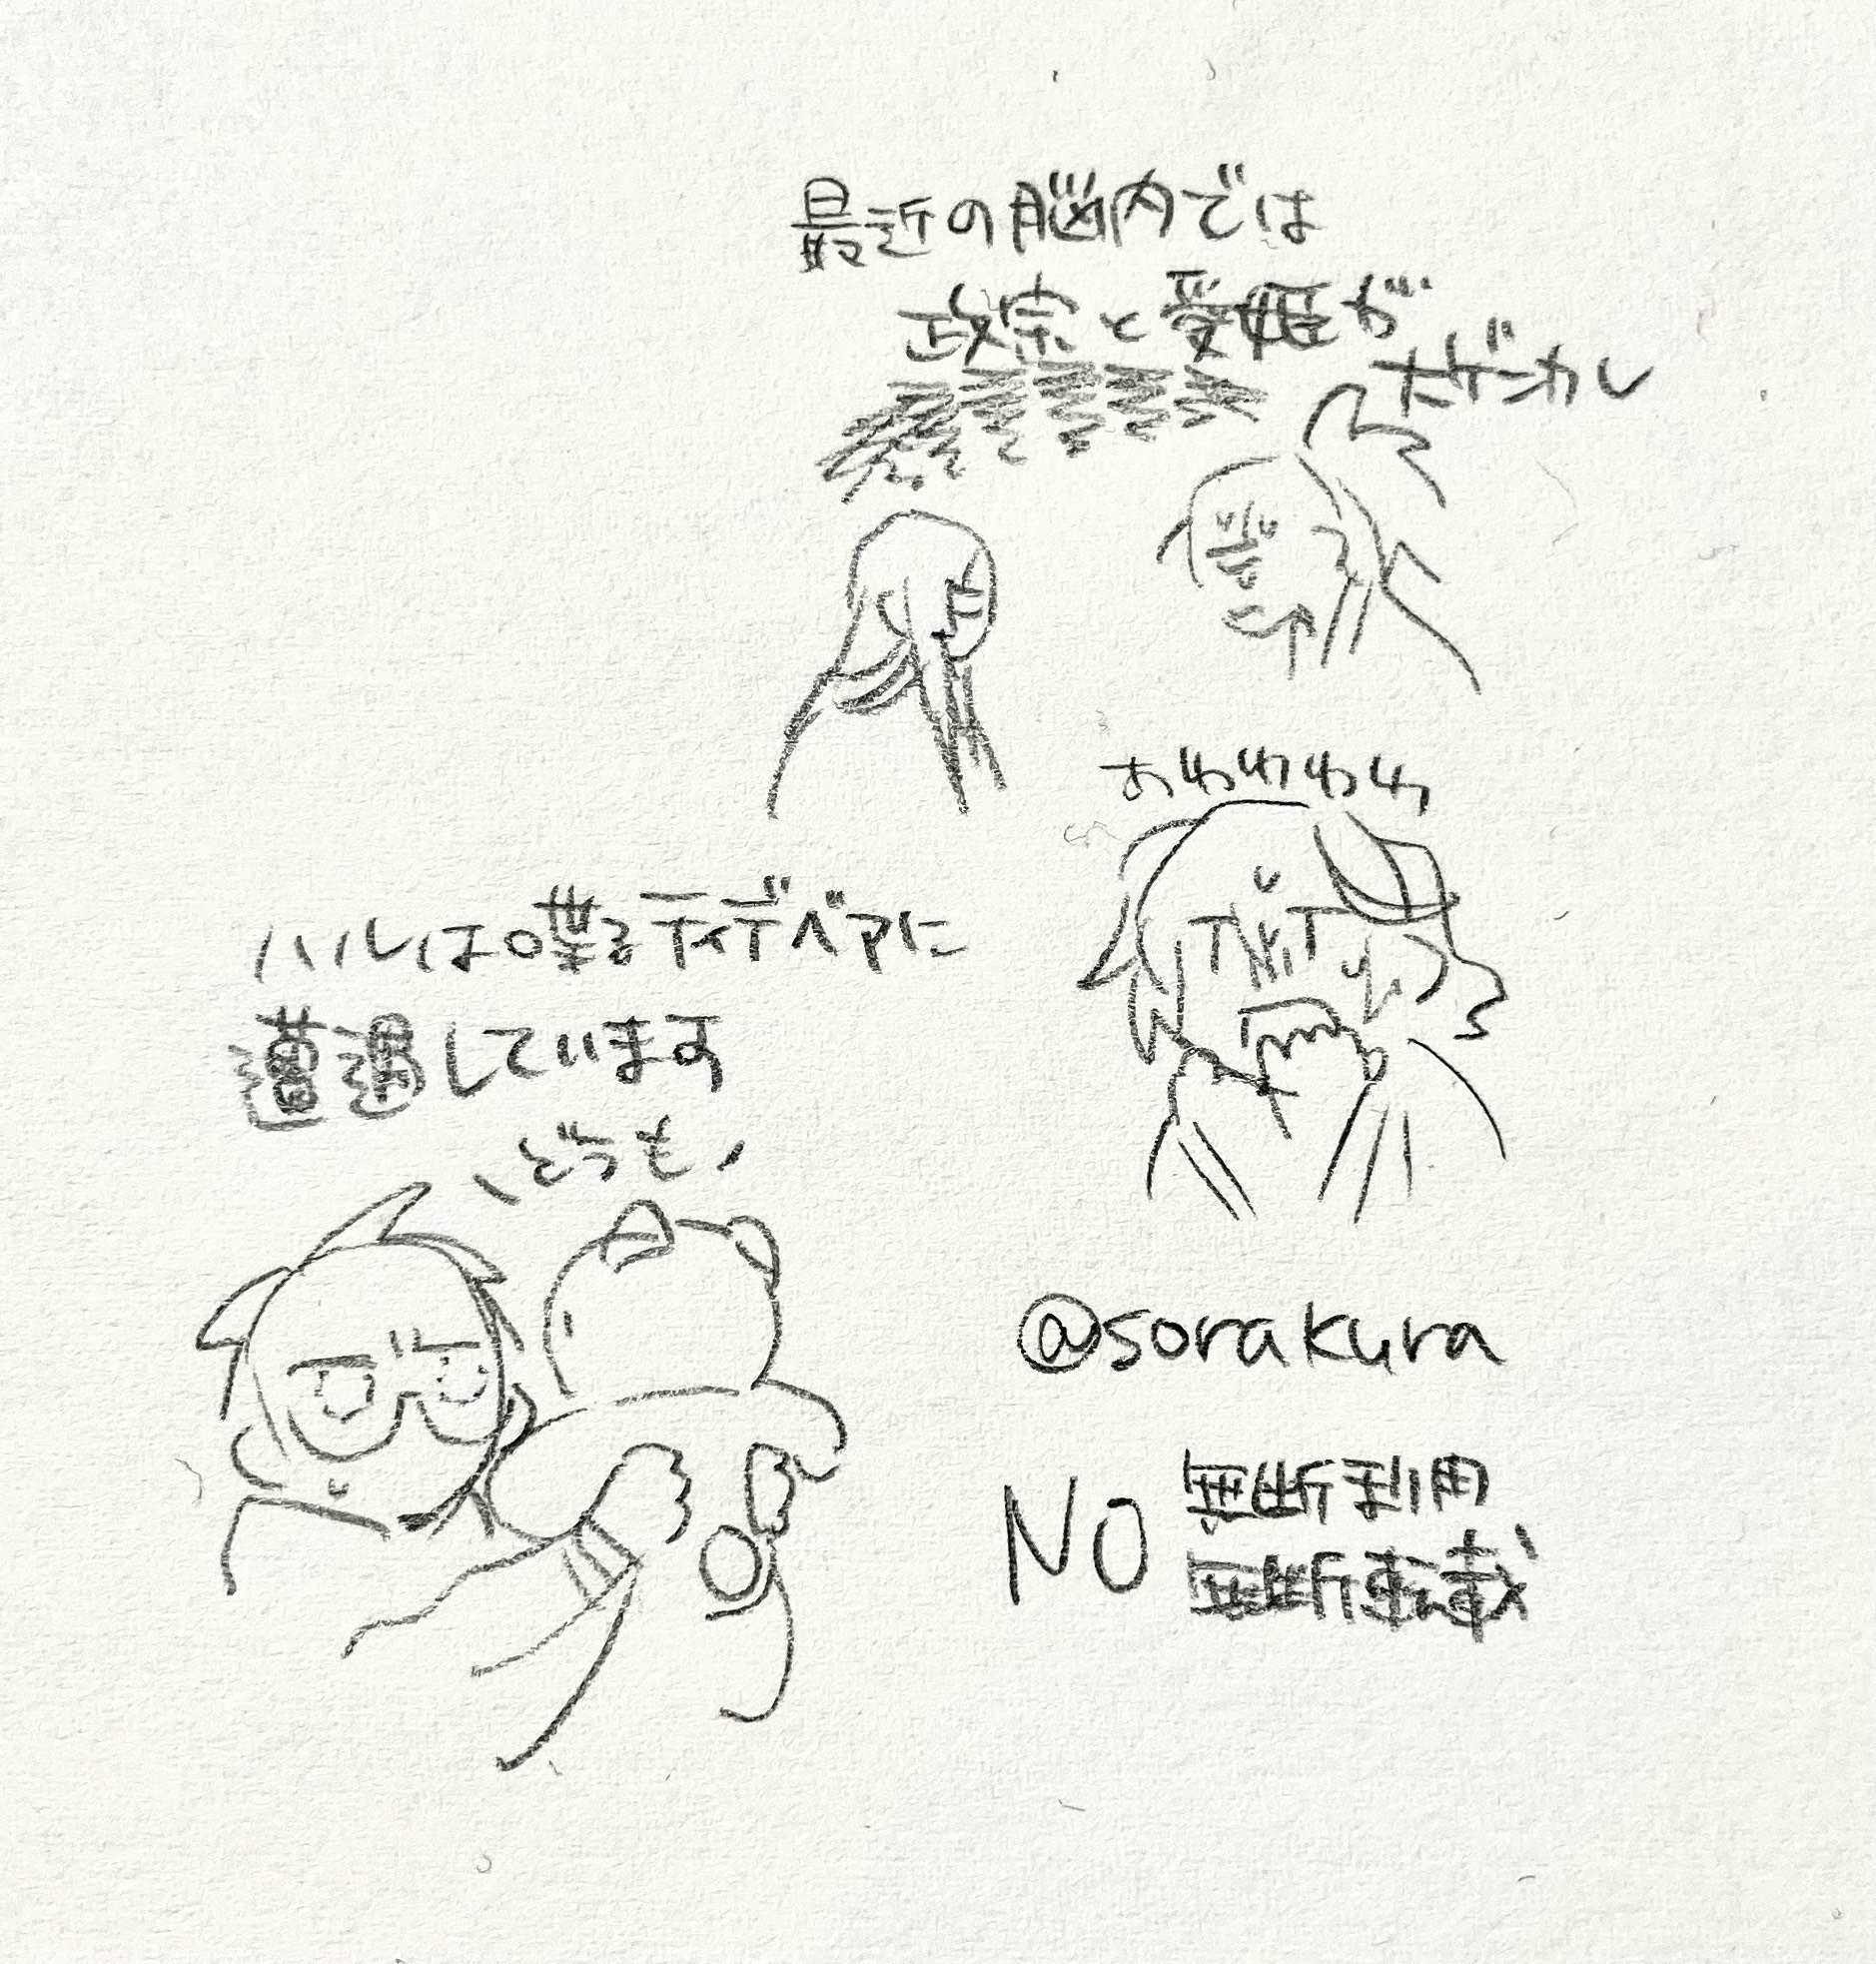 最近の脳内では
政宗と愛姫が
ナゲーカレ
おわわわわ
ハルは喋るテディベアに
遭遇しています
どうも
@sorakura
NO 無断利用
無断転載